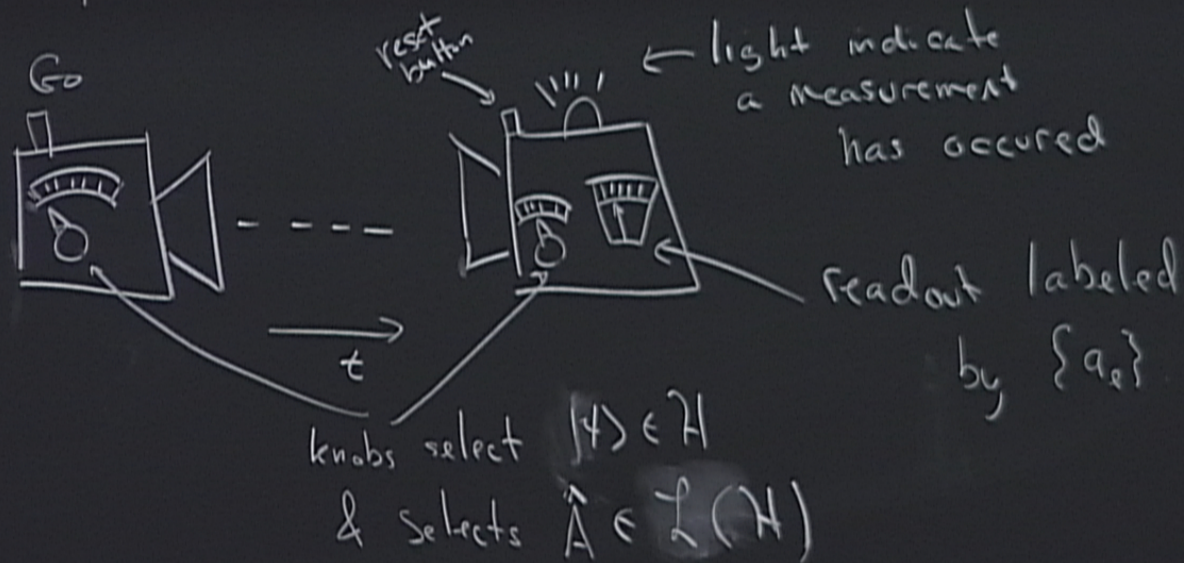 Go
reset
button
← light indicate
a measurement
has occured
readout labeled
by {aₑ}
t
knobs select |ψ⟩ ∈ H
& selects Â ∈ L(H)